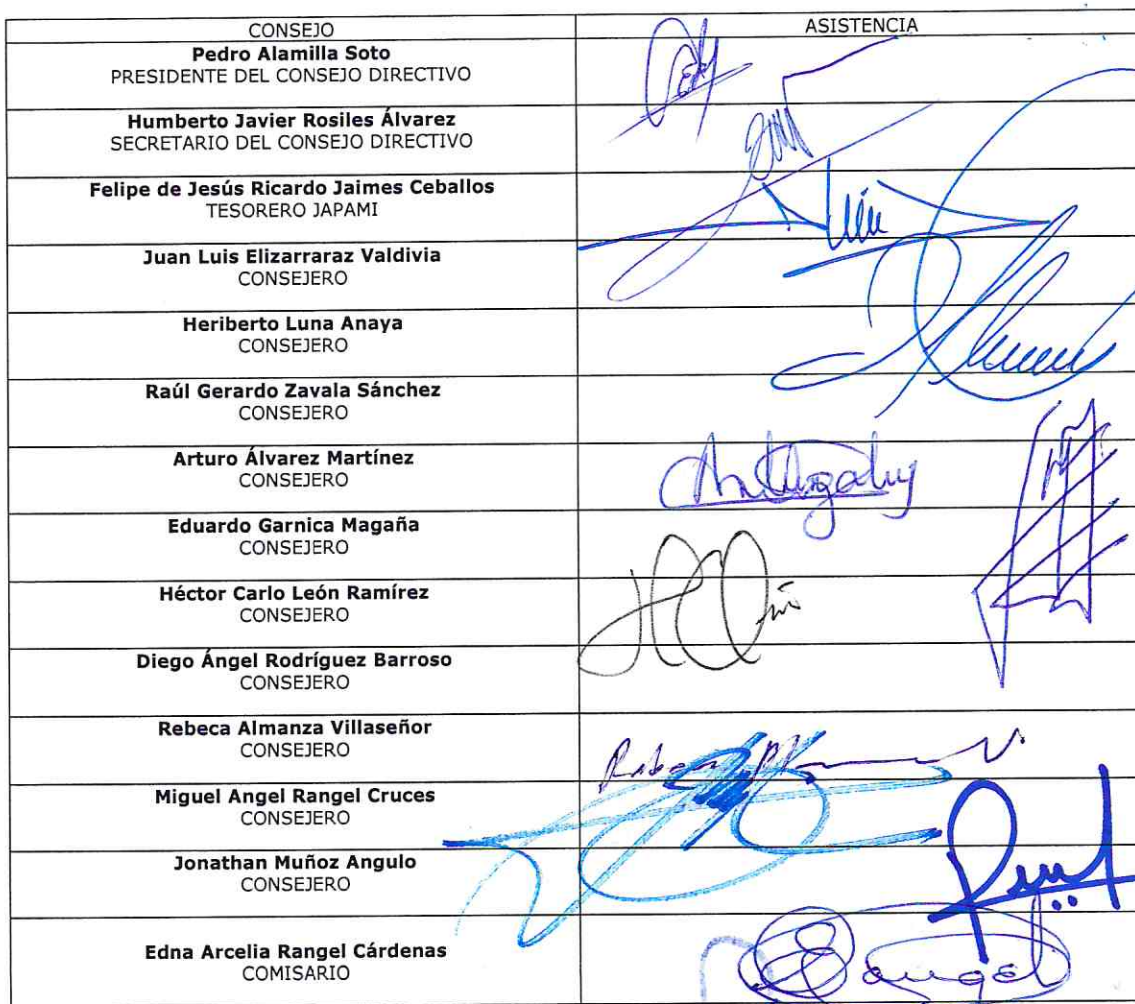 CONSEJO ASISTENCIA
Pedro Alamilla Soto
PRESIDENTE DEL CONSEJO DIRECTIVO
Humberto Javier Rosiles Álvarez
SECRETARIO DEL CONSEJO DIRECTIVO
Felipe de Jesús Ricardo Jaimes Ceballos
TESORERO JAPAMI
Juan Luis Elizarraraz Valdivia
CONSEJERO
Heriberto Luna Anaya
CONSEJERO
Raúl Gerardo Zavala Sánchez
CONSEJERO
Arturo Álvarez Martínez
CONSEJERO
Eduardo Garnica Magaña
CONSEJERO
Héctor Carlo León Ramírez
CONSEJERO
Diego Ángel Rodríguez Barroso
CONSEJERO
Rebeca Almanza Villaseñor
CONSEJERO
Miguel Angel Rangel Cruces
CONSEJERO
Jonathan Muñoz Angulo
CONSEJERO
Edna Arcelia Rangel Cárdenas
COMISARIO
Rangel